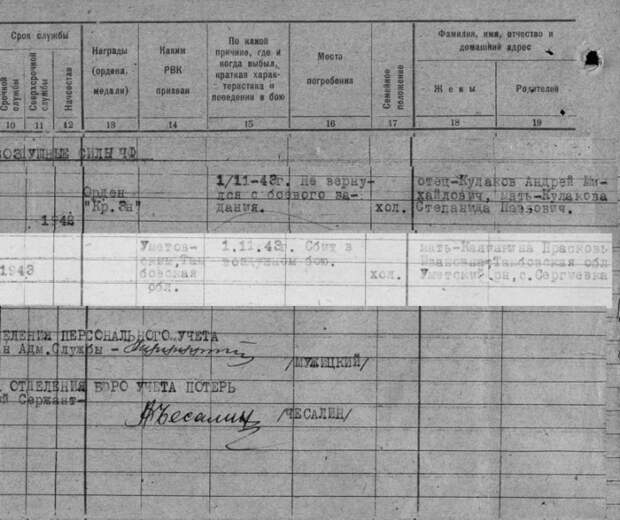 Срок службы
Срочной службы
Сверхсрочной службы
Начсостав
Награды (ордена, медали)
Каким РВК призван
По какой причине, где и когда выбыл, краткая характеристика и поведения в бою
Место погребения
Семейное положение
Фамилия, имя, отчество и домашний адрес
Жены
Родителей
10 11 12 13 14 15 16 17 18 19
ВОЗДУШНЫЕ СИЛЫ ЧФ
1942
Орден "Кр.Зн"
1/11-43г. Не вернулся с боевого задания.
хол.
отец-Кулаков Андрей Михайлович, мать-Кулакова Степанида
1943
Уметовским, Тамбовская обл.
1.11.43г. Сбит в воздушном бою.
хол.
мать-
Ивановна Тамбовская обл
Уметский рн, с. Сергиевка
ДЕЛЕНИЯ ПЕРСОНАЛЬНОГО УЧЕТА
н Адм. Службы -
/МУЖИЦКИЙ/
ОТДЕЛЕНИЯ БЮРО УЧЕТА ПОТЕРЬ
й Сержант-
Чесалин
/ЧЕСАЛИН/